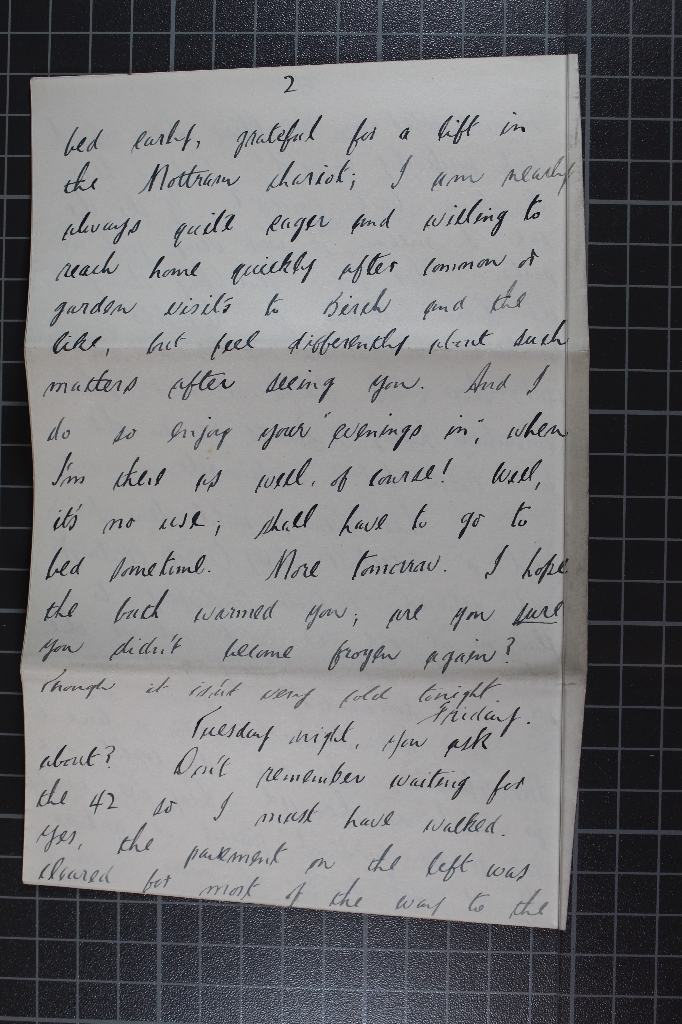 2
bed early, grateful for a lift in
the Mottram chariot; I am nearly
always quite eager and willing to
reach home quickly after common or
garden visits to Birch and the
like, but feel differently about such
matters after seeing you. And I
do so enjoy your "evenings in", when
I'm there as well, of course! Well,
it's no use; shall have to go to
bed sometime. More tomorrow. I hope
the bath warmed you; are you sure
you didn't become frozen again?
Though it isn't very cold tonight
Friday.
Tuesday night, you ask
about? Don't remember waiting for
the 42 so I must have walked.
Yes, the pavement on the left was
cleared for most of the way to the